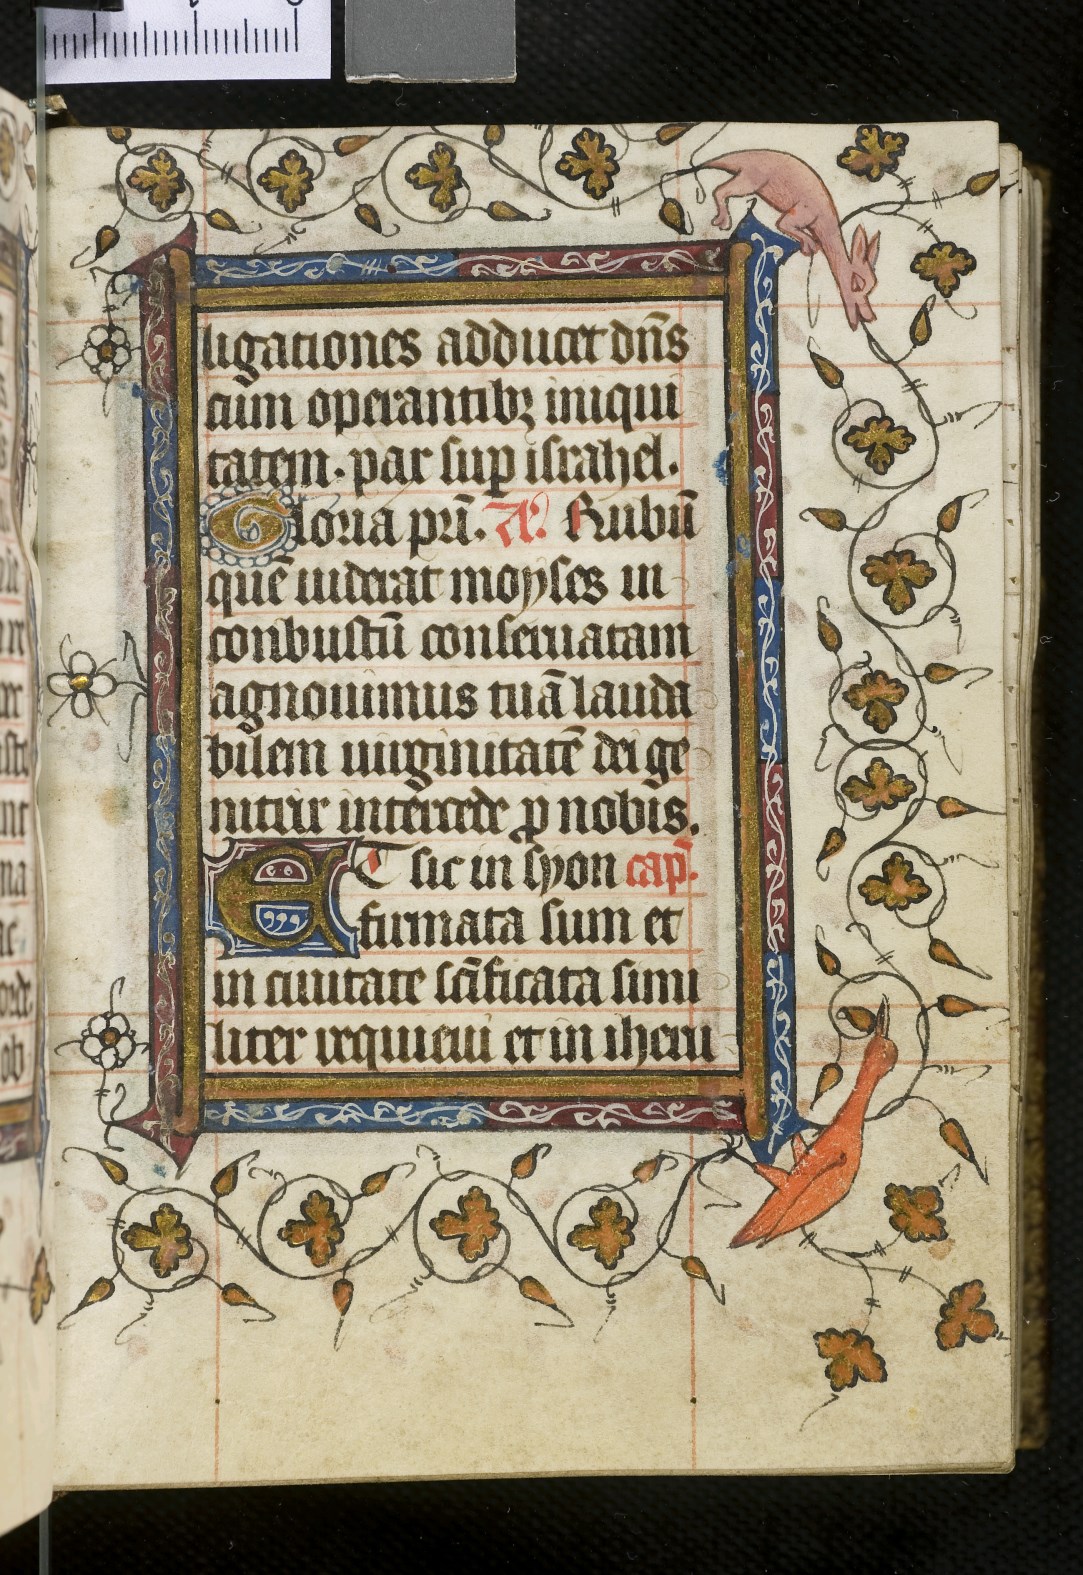 ligationes adducet dn̄s
cum operantibꝫ iniqui
tatem. pax suꝑ israhel.
Gloria pr̄i. A͞. Rubū
quē uiderat moyses in
conbustū conseruatam
agnouimus tuā lauda
bilem uirginitatē dei ge
nitrix intercede ꝓ nobis.
ET sic in syon cap̄.
firmata sum et
in ciuitate sc̄ificata simi
liter requieui et in iheru